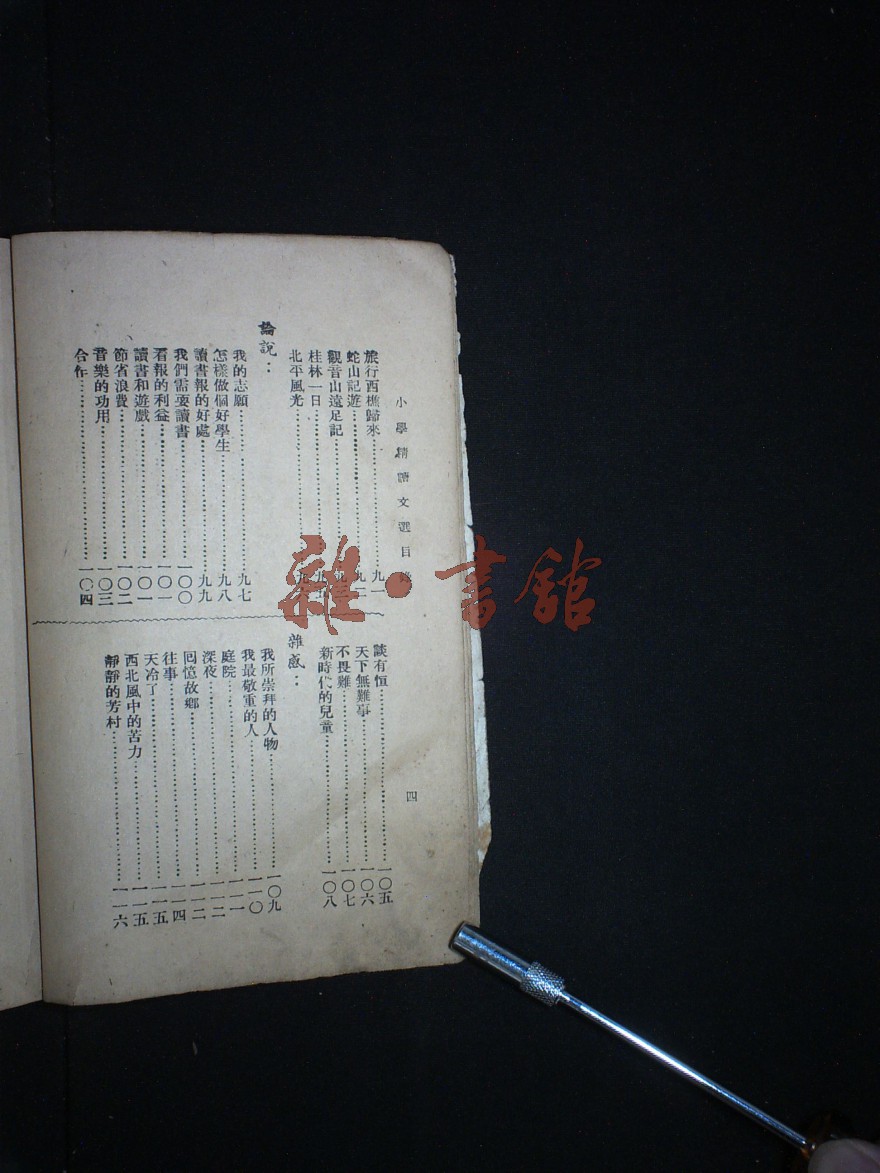 小學精讀文選目錄
四
旅行西樵歸來……九一
蛇山記遊……九二
觀音山遠足記
桂林一日
北平風光
論說：
我的志願……九七
怎樣做個好學生……九八
讀書報的好處……九九
我們需要讀書……一〇〇
看報的利益……一〇一
讀書和遊戲……一〇一
節省浪費……一〇二
音樂的功用……一〇三
合作……一〇四
談有恒……一〇五
天下無難事……一〇六
不畏難……一〇七
新時代的兒童……一〇八
雜感：
我所崇拜的人物……一〇九
我最敬重的人……一一〇
庭院……一一一
深夜……一一二
回憶故鄉……一一二
往事……一一四
天冷了……一一五
西北風中的苦力……一一五
靜靜的芳村……一一六
雜·書舘